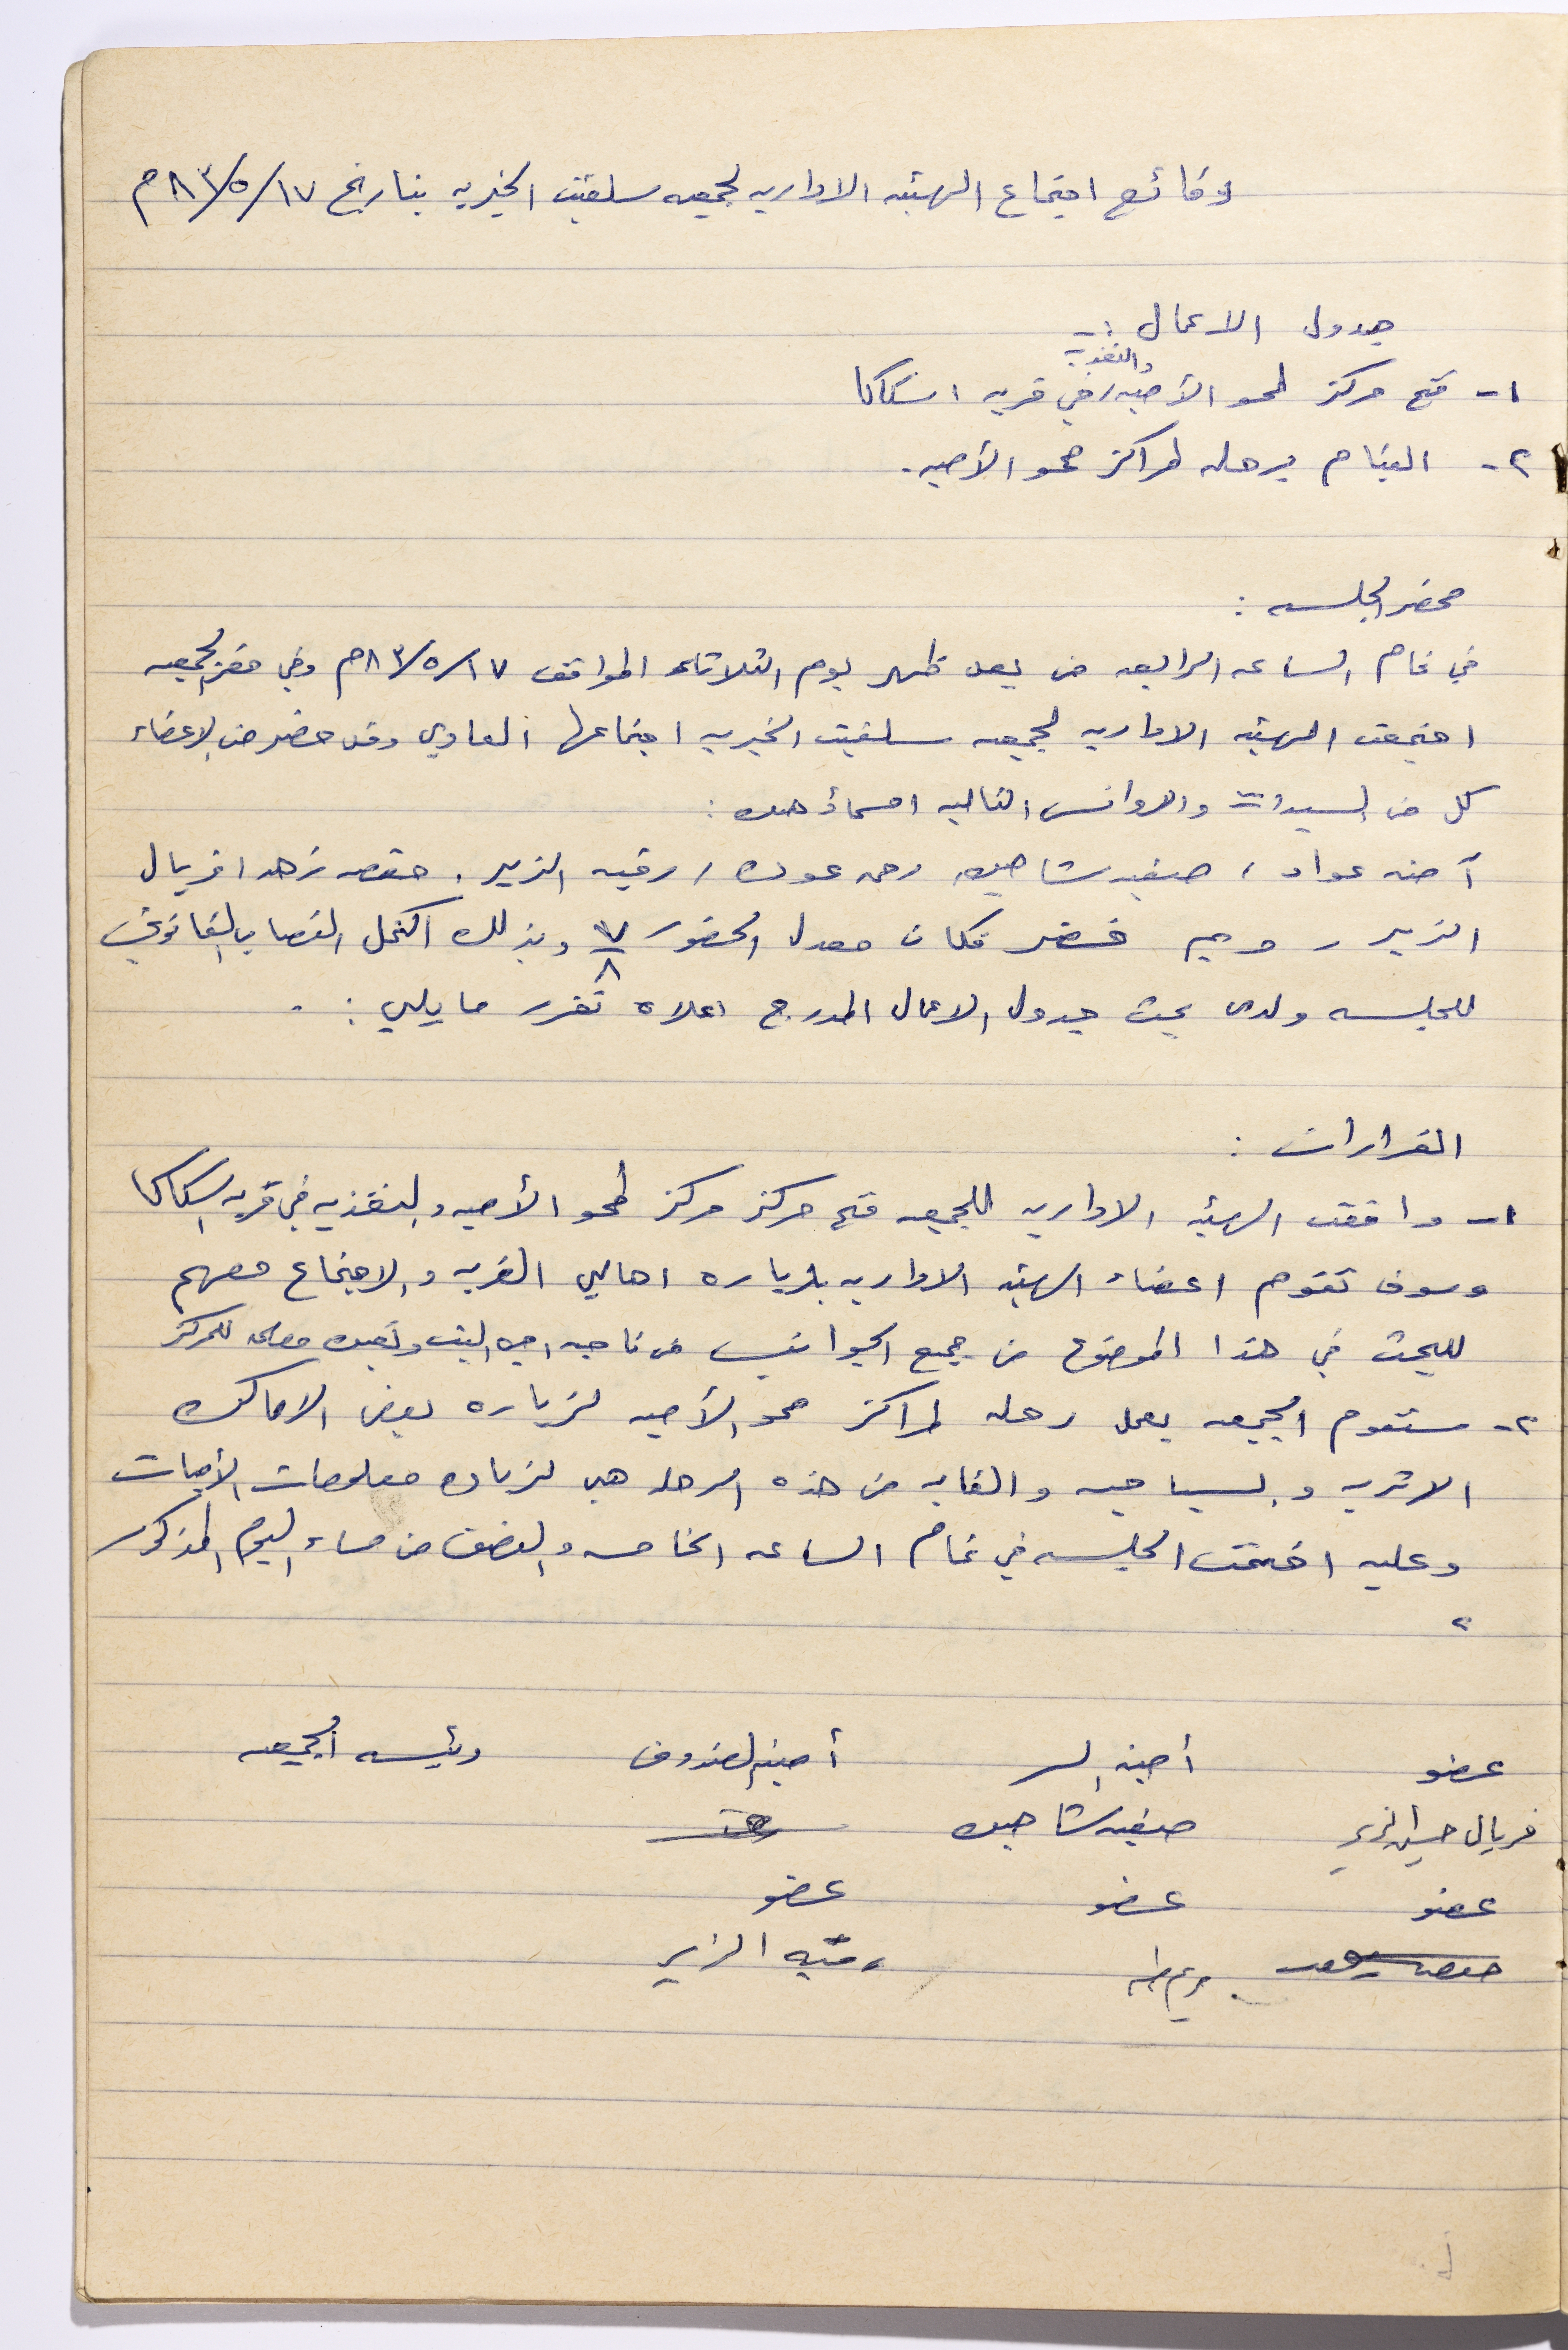 وقائع اجتماع الهيئه الاداريه لجمعيه سلفيت الخيريه بتاريخ ١٧/٥/٨٣م
جدول الاعمال :-
والتغذيه
١- فتح مركز لمحو الأميه/ في قريه اسكاكا
٢- القيام برحله لمراكز محو الأميه.
محضر الجلسه :
في تمام الساعه الرابعه من بعد ظهر يوم الثلاثاء الموافق ١٧/٥/٨٣م وفي مقر الجمعيه
اجتمعت الهيئه الاداريه لجمعيه سلفيت الخيريه اجتماعها العادي وقد حضر من الاعضاء
كل من السيدات والاوانس التاليه اسماؤهن :
آمنه عواد ، صفيه شاهين رحمه عوده / رقيه الزير . حفصه زهد افريال
الزير ر مريم خضر فكان معدل الحضور ٧/٨ وبذلك اكتمل النصاب القانوني
للجلسه ولدى بحث جدول الاعمال المدرج اعلاه تقرر ما يلي : .
القرارات :
١- وافقت الهيئه الاداريه للجمعيه فتح مركز مركز لمحو الأميه والتغذيه في قريه اسكاكا
وسوف تقوم اعضاء الهيئه الاداريه بزياره اهالي القريه والاجتماع معهم
للبحث في هذا الموضوع من جميع الجوانب من ناحيه اجره البيت وتعيين معلمه للمركز
٢- ستقوم الجمعيه بعمل رحله لمراكز محو الأميه لزياره بعض الاماكن
الاثريه والسياحيه والغايه من هذه الرحله هي لزياده معلومات الأميات
وعليه اختتمت الجلسه في تمام الساعه الخامسه والنصف من مساء اليوم المذكور
عضو أمينه السر أمينه الصندوق رئيسه الجمعيه
فريال حسين الزير صفيه شاهين
عضو عضو عضو
حفصه رقيه الزير